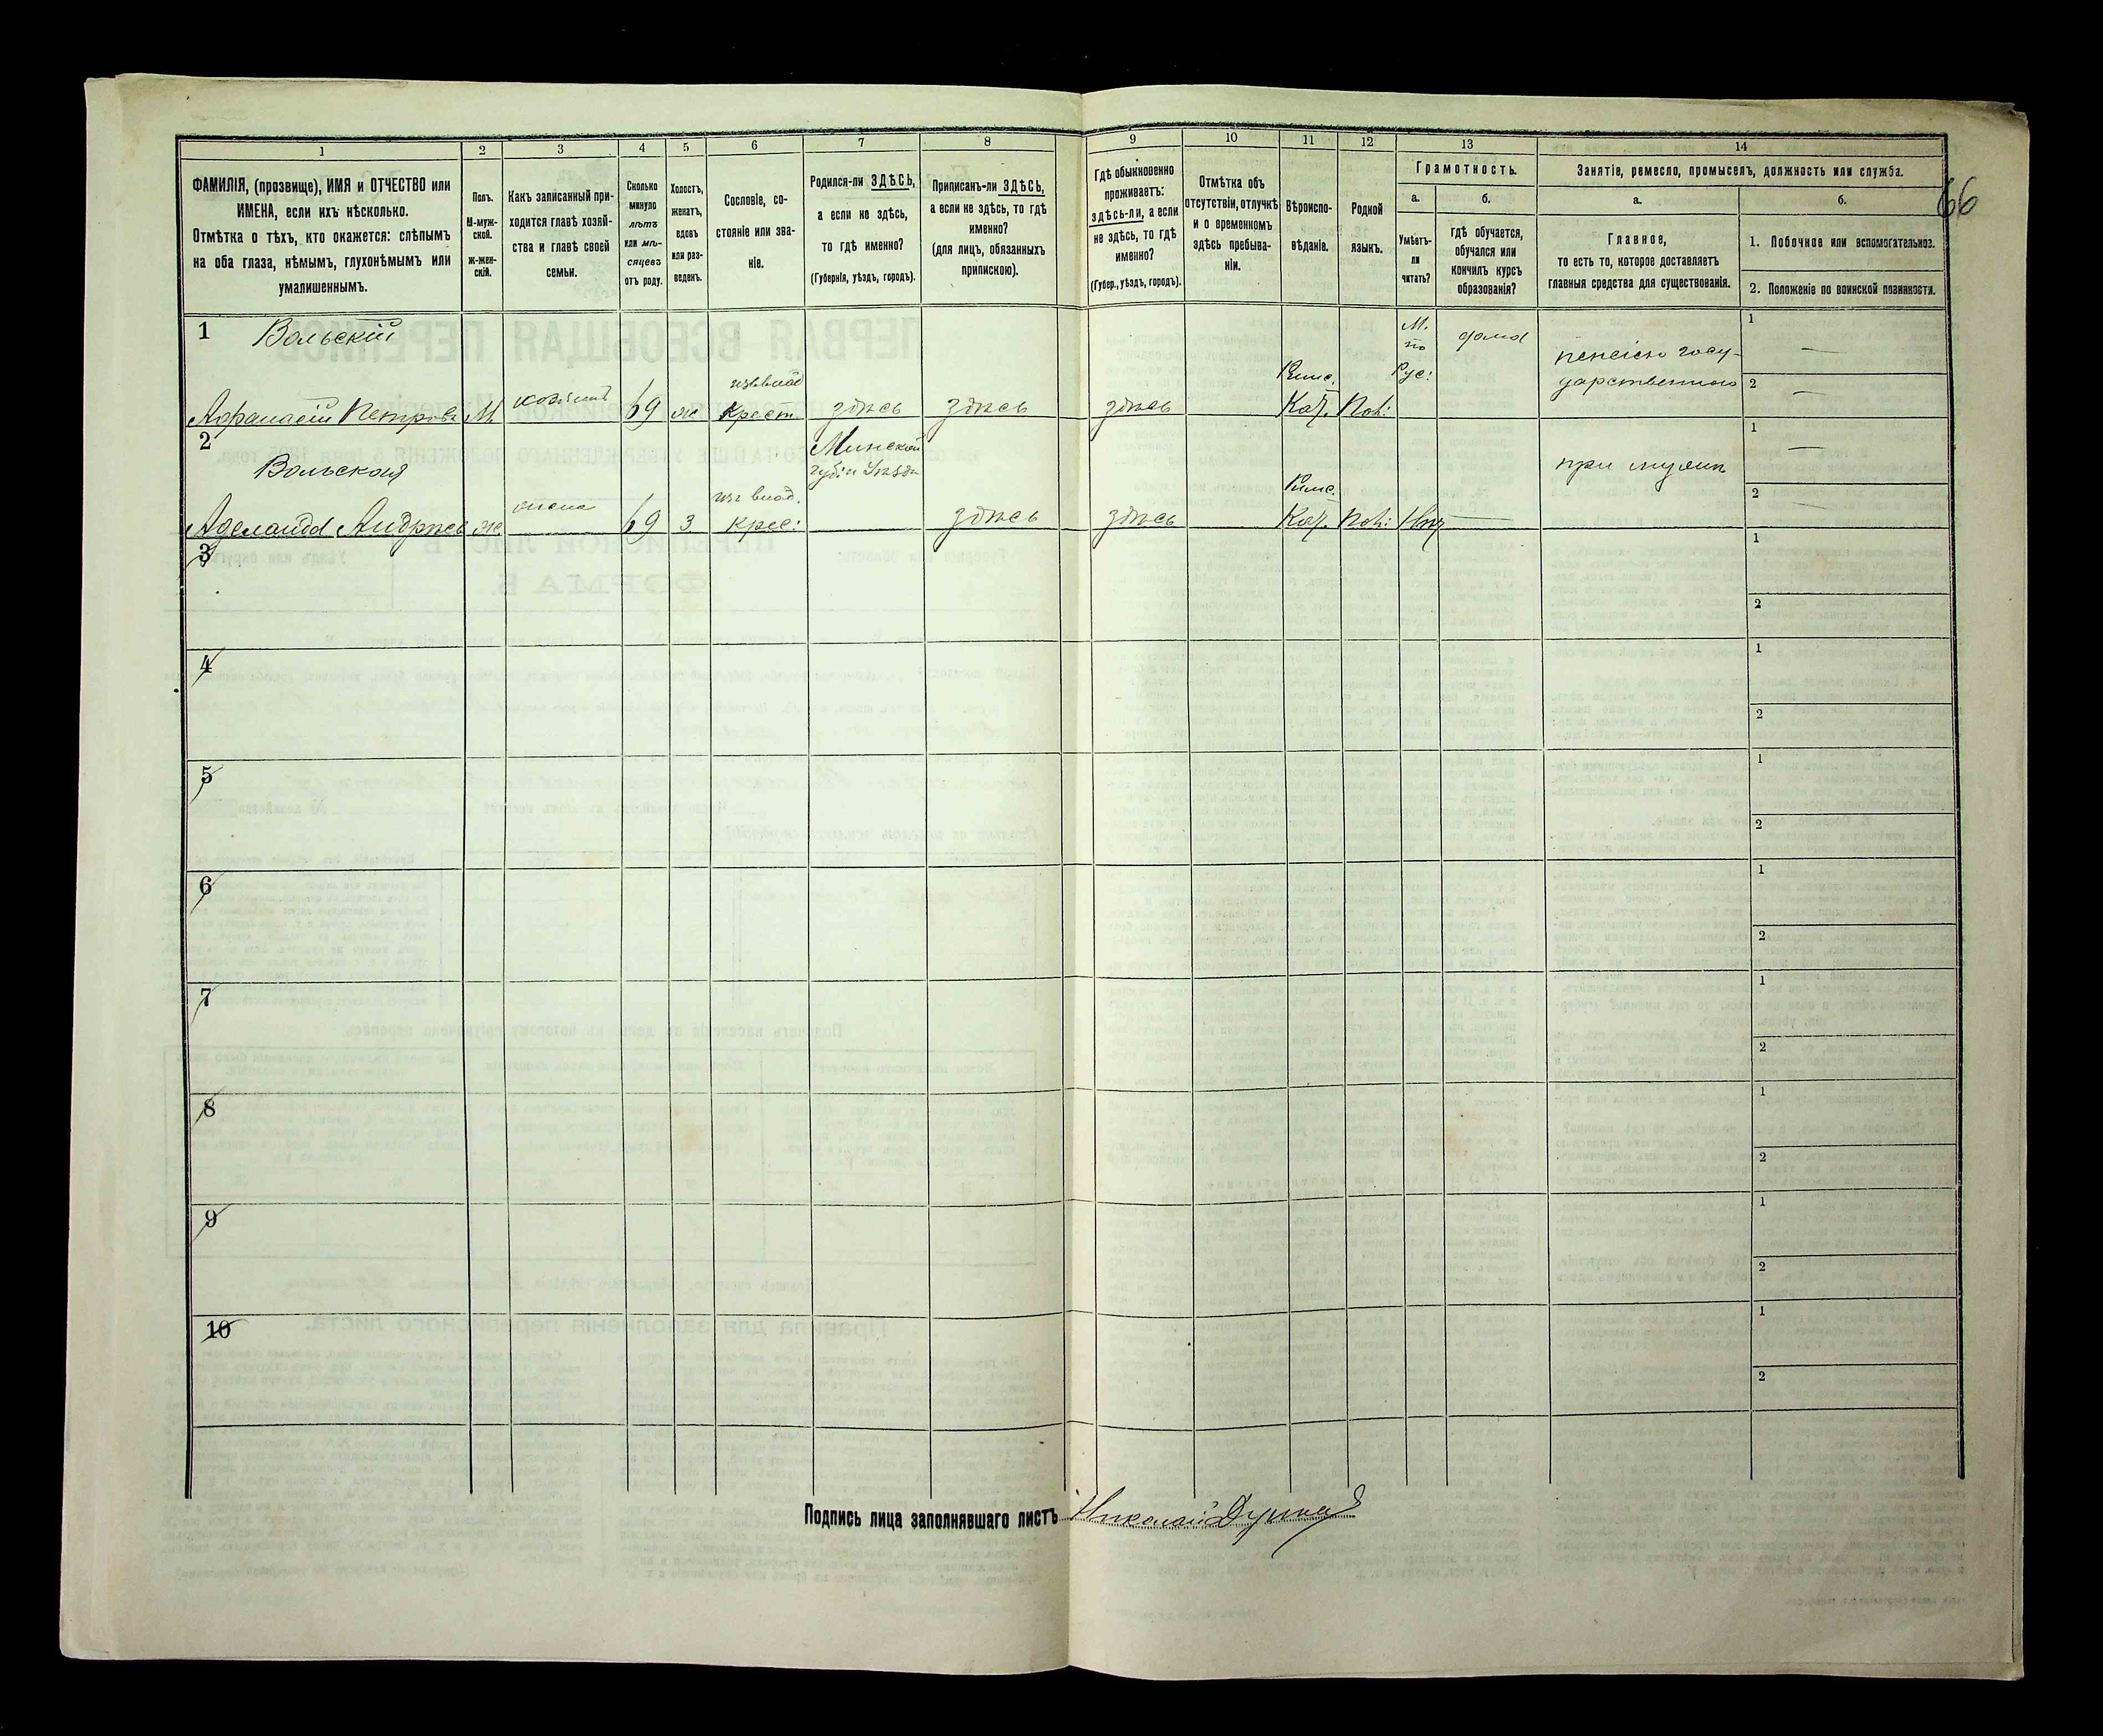 66
1
2
3
4
5
6
7
8
9
10
11
12
13
14
ФАМИЛІЯ, (прозвище), ИМЯ и ОТЧЕСТВО или
ИМЕНА, если ихъ нѣсколько.
Отмѣтка о тѣхъ, кто окажется: слѣпымъ
на оба глаза, нѣмымъ, глухонѣмымъ или
умалишеннымъ.
Полъ.
М-муж-
ской.
Ж-жен-
скій.
Какъ записанный при-
ходится главѣ хозяй-
ства и главѣ своей
семьи.
Сколько
минуло
лѣтъ
или мѣ-
сяцевъ
отъ роду.
Холостъ,
женатъ,
вдовъ
или раз-
веденъ.
Сословіе, со-
стояніе или зва-
ніе.
Родился-ли ЗДѢСЬ,
а если не здѣсь,
то гдѣ именно?
(Губернія, уѣздъ, городъ).
Приписанъ-ли ЗДѢСЬ,
а если не здѣсь, то гдѣ
именно?
(для лицъ, обязанныхъ
припискою).
Гдѣ обыкновенно
проживаетъ:
здѣсь-ли, а если
не здѣсь, то гдѣ
именно?
(Губер., уѣздъ, городъ).
Отмѣтка объ
отсутствіи, отлучкѣ
и о временномъ
здѣсь пребыва-
ніи.
Вѣроиспо-
вѣданіе.
Родной
языкъ.
Грамотность.
а.
Умѣетъ-
ли
читать?
б.
гдѣ обучается,
обучался или
кончилъ курсъ
образованія?
Занятіе, ремесло, промыселъ, должность или служба.
а.
Главное,
то есть то, которое доставляетъ
главныя средства для существованія.
б.
1. Побочное или вспомогательное.
2. Положеніе по воинской повинности.
1 Вольскій
Афранасій Петровъ М. хозяинъ 69 ж изъ влад крест. здѣсь здѣсь здѣсь Римс. Кат. Пол: М. по Рус: дома пенсіею госу-
дарственною
1 —
2 —
2 Вольская
Аделаида Андрѣев ж жена 69 з изъ влад. крес: Минской губ: и уѣзда здѣсь здѣсь Римс. Кат. Пол: Нѣт — при мужѣ
1 —
2 —
3
1
2
4
1
2
5
1
2
6
1
2
7
1
2
8
1
2
9
1
2
10
1
2
Подпись лица заполнявшаго листъ Николай